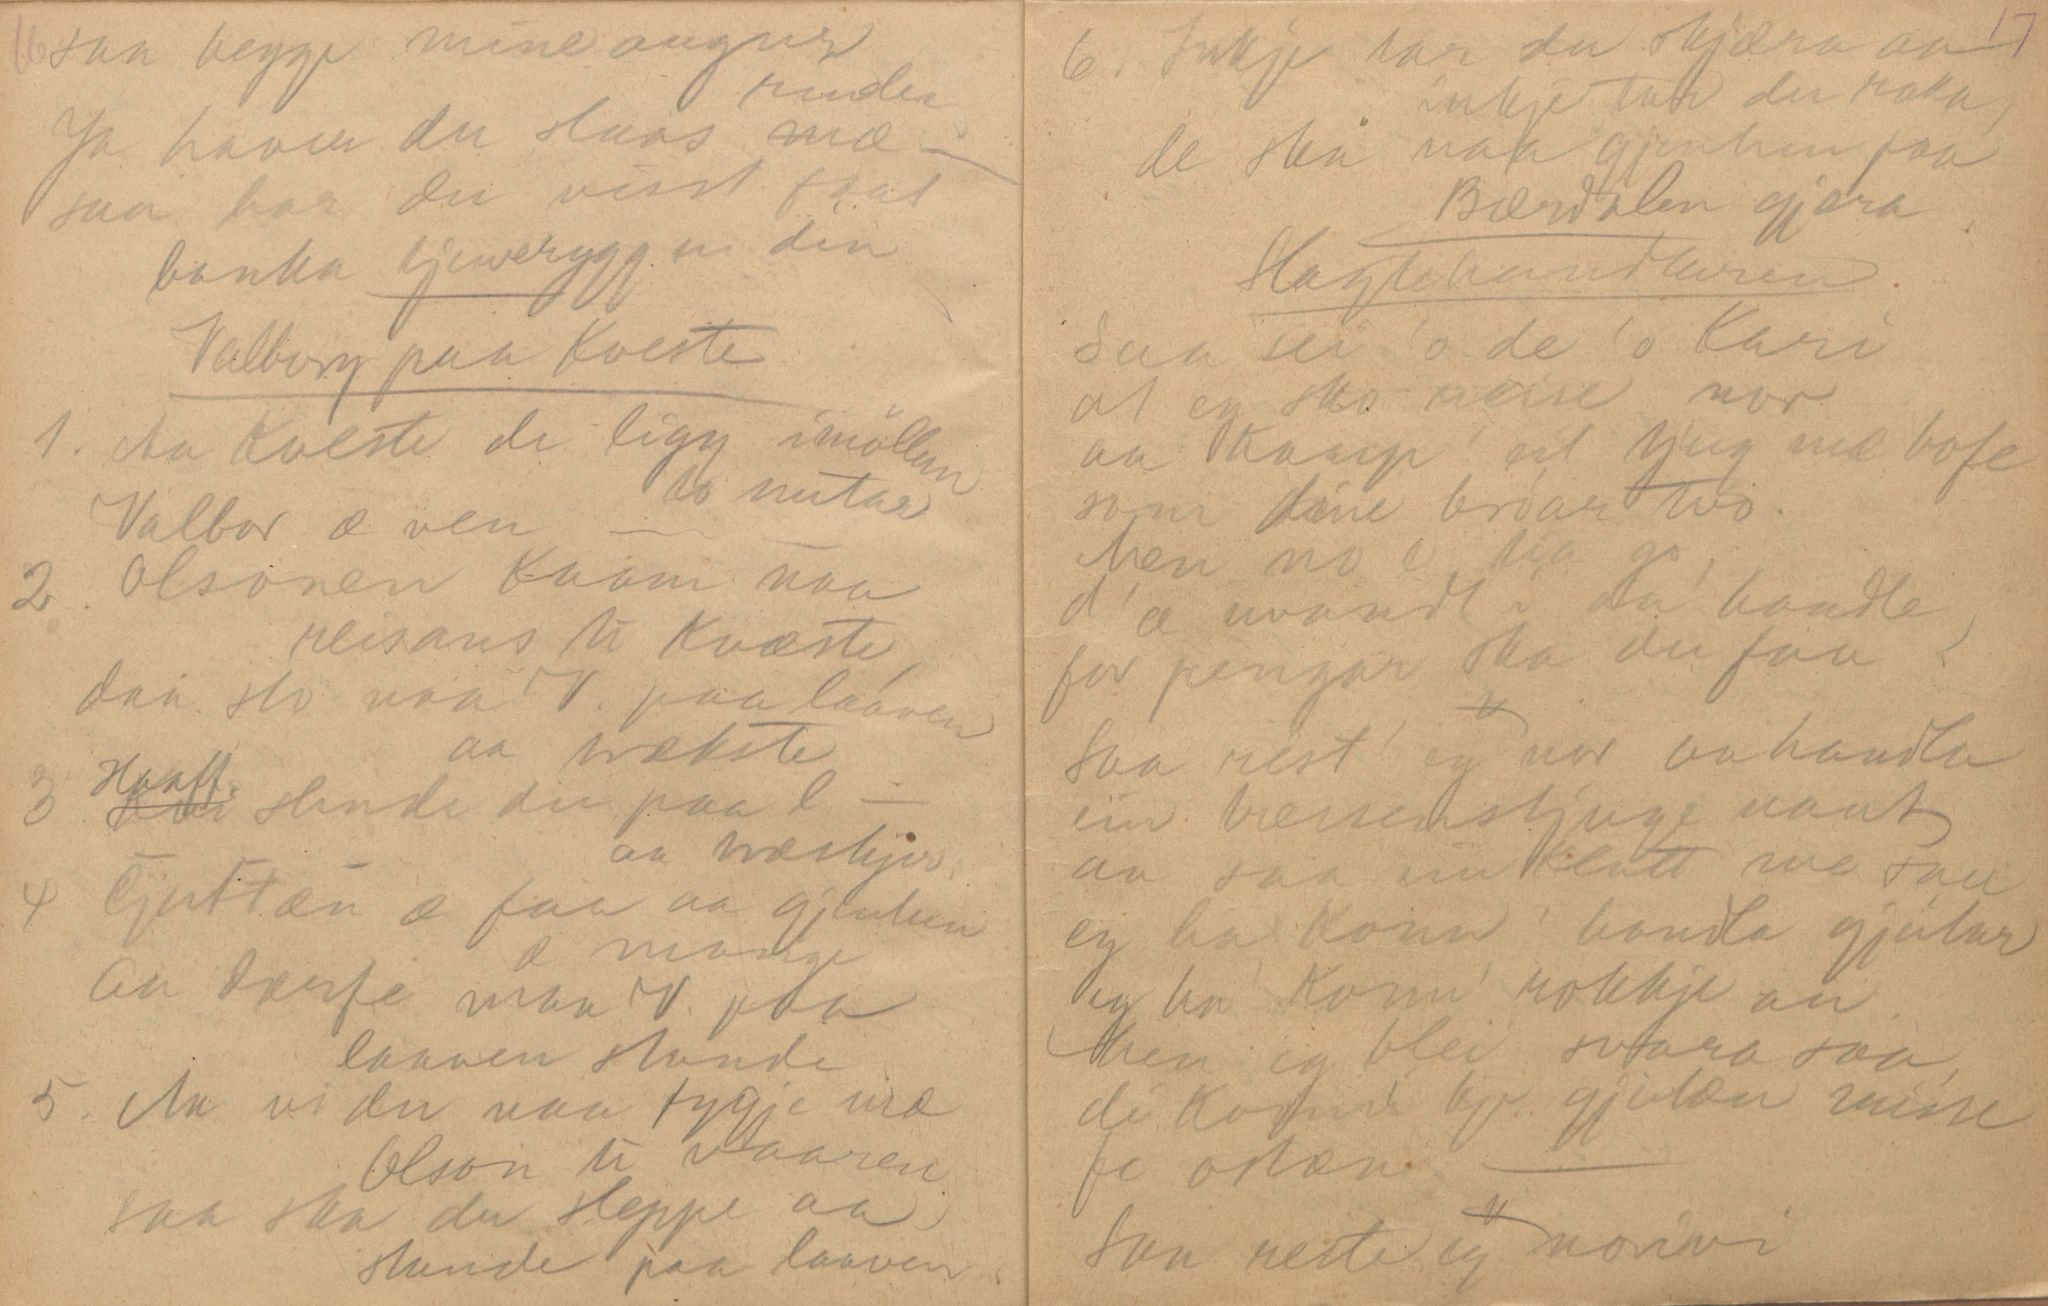 16
saa begge mine augur
Ja haver du slaas mæ — ander
saa har du visst faat
banka kjoveryggen din
Valborg paa Kveste
1. Aa Kveste de ligg imöllom
to nutar
Valbor æ ven —
2. Olsonen Kaam naa
reisans ti Kvæste,
daa sto naa V. paa laaven
aa træskte
3 Hoaff. stende du paa l —
aa træskjer.
4 Gjuttæn æ faa aa gjentun
æ mange
Aa dærfe maa V. paa
laaven stande
5. Aa vi du naa fygje mæ
Olson ti vaaren
saa ska du sleppe aa
stande paa laaven.
17
6. Inkje tar du skjæra aa
inkje tar du raka,
de ska naa gjentun paa
Bærdalen gjæra.
Slagtehandlaren.
Saa sei 'o de 'o Kari
at eg sko reise nor
aa Kaupe eit tjug mæ bofe
som dine bröar tvo.
Men no e tia go,
d'æ uvandt i da' handle,
for pengar ska du faa.
Saa rest' eg nor aa handla
ein værsenstjuge naut
aa saa ein Klatt mæ sau
eg ha Konn' handla gjeitar
eg ha' Konn' rokkje an
Men eg blei svara saa,
di Konn' kje gjeitæn misse
fe ostæn —
Saa reste eg noriwi